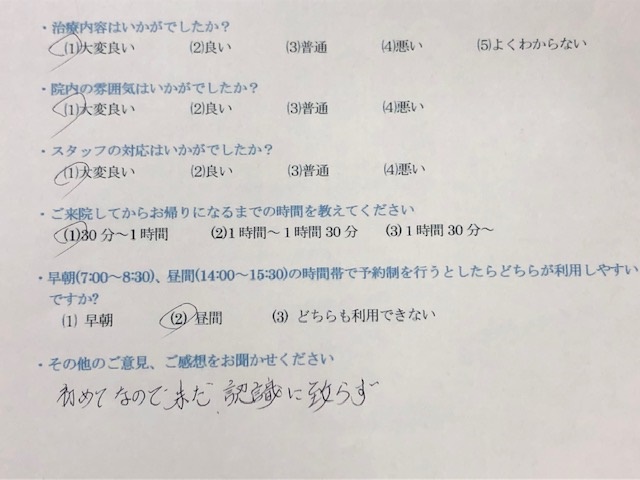 ・治療内容はいかがでしたか？
(1)大変良い (2)良い (3)普通 (4)悪い (5)よくわからない
・院内の雰囲気はいかがでしたか？
(1)大変良い (2)良い (3)普通 (4)悪い
・スタッフの対応はいかがでしたか？
(1)大変良い (2)良い (3)普通 (4)悪い
・ご来院してからお帰りになるまでの時間を教えてください
(1)30分～1時間 (2)1時間～1時間30分 (3)1時間30分～
・早朝(7:00～8:30)、昼間(14:00～15:30)の時間帯で予約制を行うとしたらどちらが利用しやすい
ですか?
(1) 早朝 (2) 昼間 (3) どちらも利用できない
・その他のご意見、ご感想をお聞かせください
初めてなので未だ認識に致らず